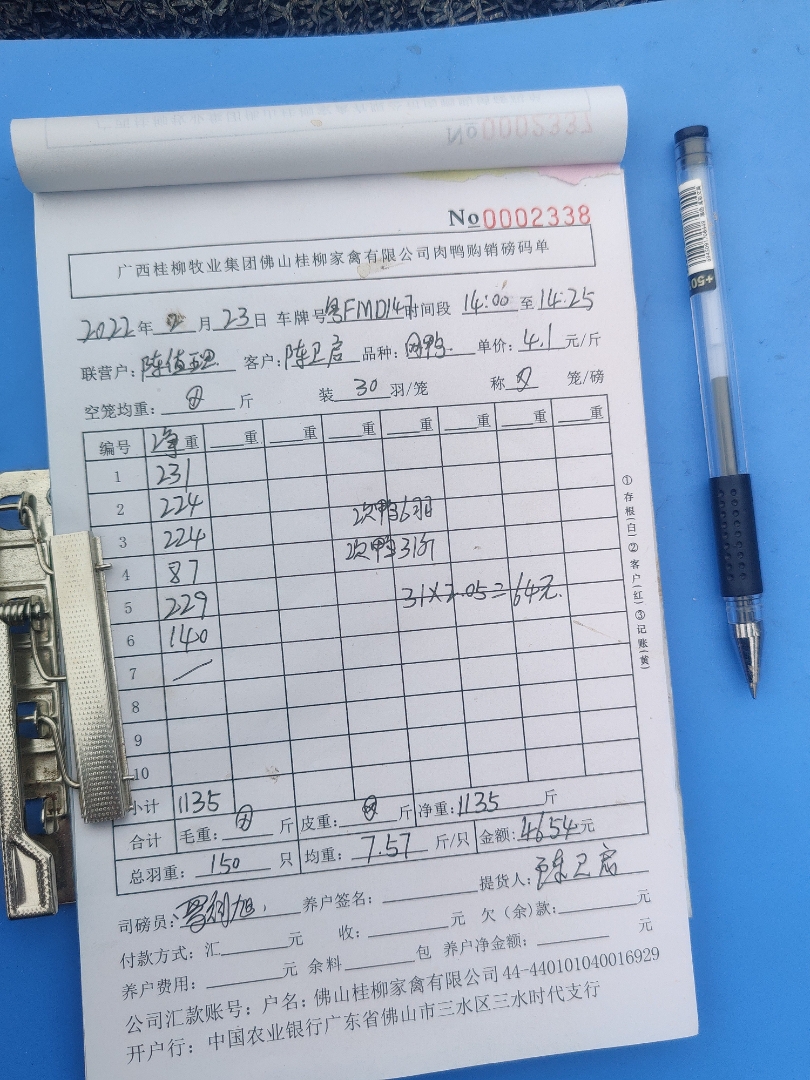 No 0002338
广西桂柳牧业集团佛山桂柳家禽有限公司肉鸭购销磅码单
2022年 月23日 车牌号粤FMD147时间段 14:00至14:25
联营户: 陈 客户: 陈卫启 品种: 肉鸭 单价: 4.1 元/斤
空笼均重: 斤 装 30 羽/笼 称 笼/磅
编号 净重 重 重 重 重 重 重 重
1 231
2 224 次鸭6羽
3 224 次鸭31斤
4 87
5 229 31×2.05=64元.
6 140
7
8
9
10
小计 1135
合计 毛重: 斤 皮重: 斤 净重: 1135 斤
总羽重: 150 只 均重: 7.57 斤/只 金额: 4654元
司磅员: 养户签名: 提货人: 陈卫启
付款方式: 汇 元 收: 元 欠(余)款: 元
养户费用: 元 余料 包 养户净金额: 元
公司汇款账号: 户名: 佛山桂柳家禽有限公司 44-440101040016929
开户行: 中国农业银行广东省佛山市三水区三水时代支行
①存根(白)②客户(红)③记账(黄)
No 0002337